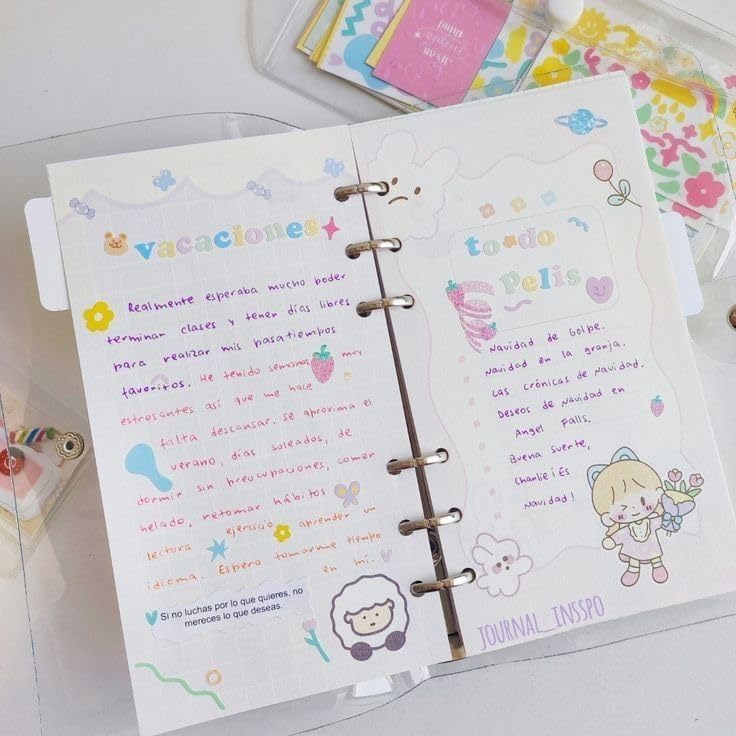 vacaciones
Realmente esperaba mucho poder
terminar clases y tener días libres
para realizar mis pasatiempos
favoritos. He tenido semanas muy
estresantes así que me hace
falta descansar. Se aproxima el
verano, días soleados, de
dormir sin preocupaciones, comer
helado, retomar hábitos
lectura ejercicio aprender un
idioma. Espero tomarme tiempo
en mí.
Si no luchas por lo que quieres, no
mereces lo que deseas.
to do
Pelis
Navidad de Golpe.
Navidad en la granja.
Las crónicas de Navidad.
Deseos de Navidad en
Angel Falls.
Buena suerte,
Charlie: ¡Es
Navidad!
JOURNAL_INSSPO